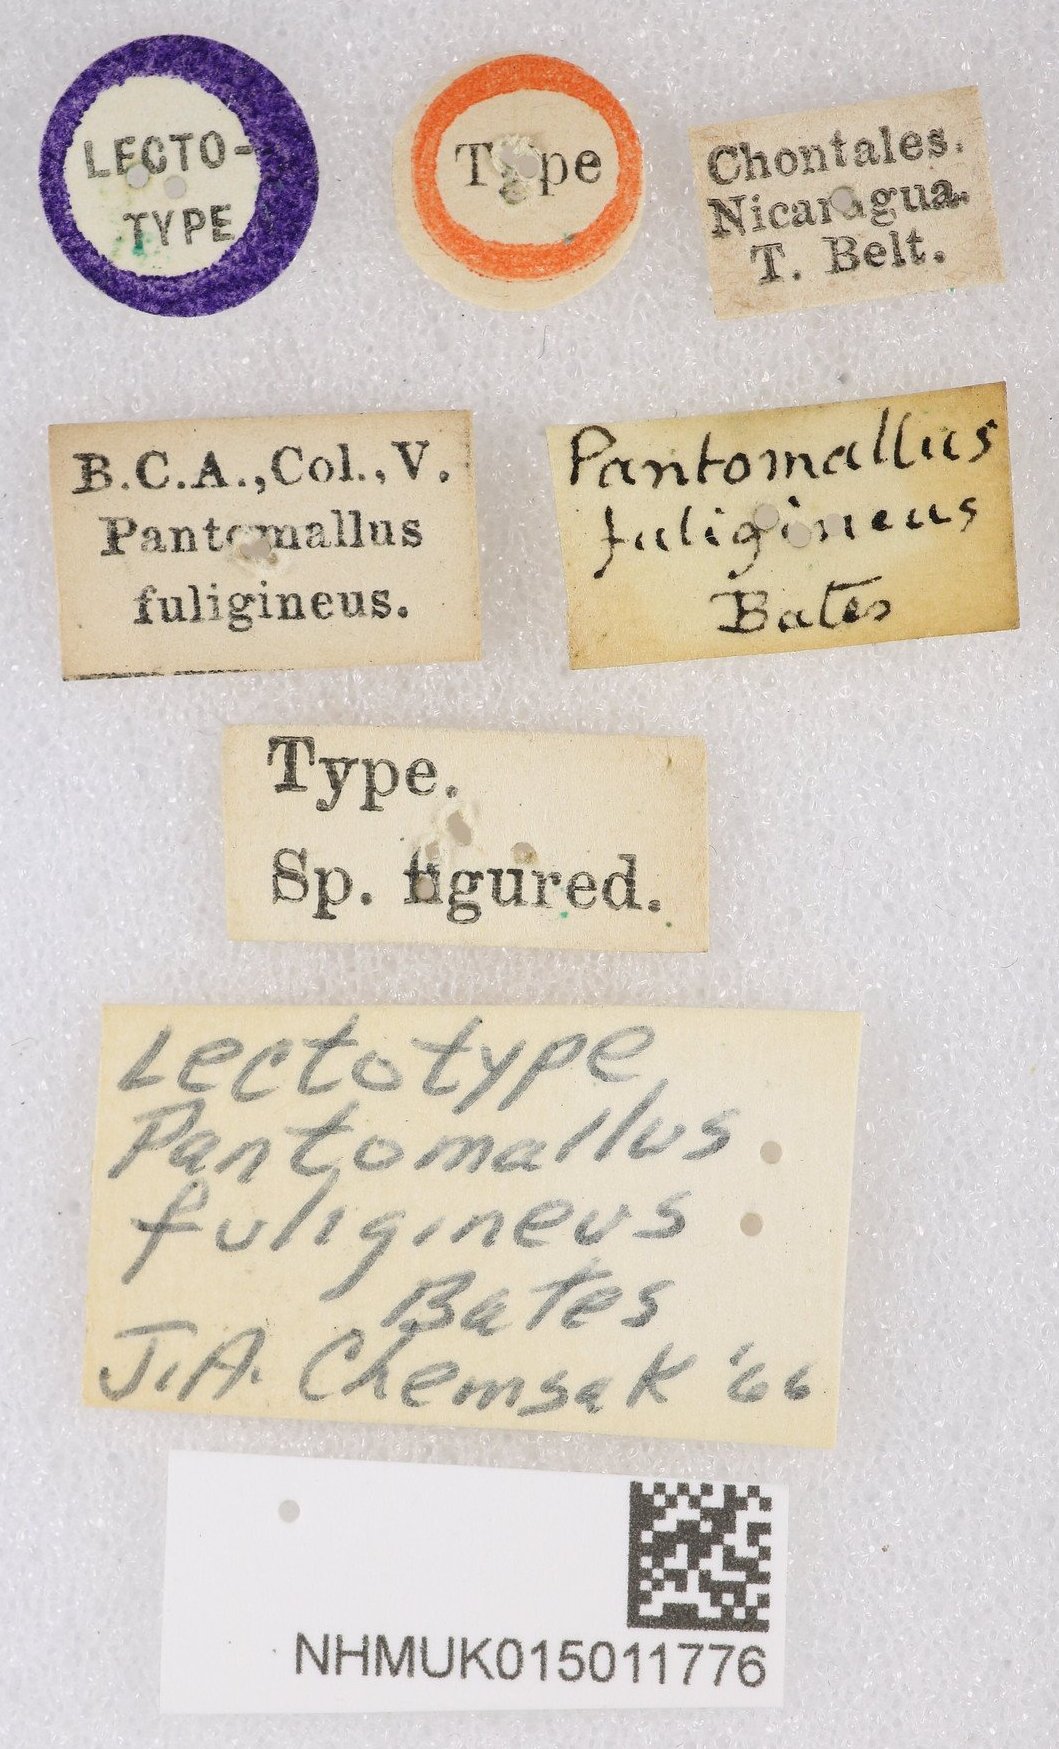 LECTO-
TYPE
Type
Chontales.
Nicaragua.
T. Belt.
B.C.A., Col., V.
Pantomallus
fuligineus.
Pantomallus
fuligineus
Bates
Type.
Sp. figured.
Lectotype
Pantomallus
fuligineus
Bates
J.A. Chemsak '66
NHMUK015011776